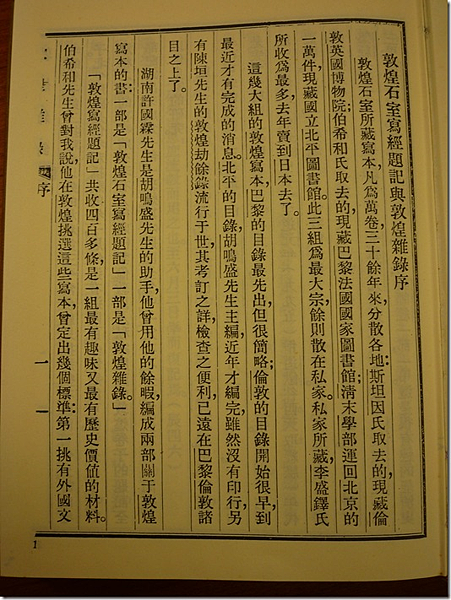 敦煌石室寫經題記與敦煌雜錄序
敦煌石室所藏寫本,凡爲萬卷,三十餘年來,分散各地:斯坦因氏取去的,現藏倫
敦英國博物院;伯希和氏取去的,現藏巴黎法國國家圖書館;淸末學部運回北京的
一萬件,現藏國立北平圖書館。此三組爲最大宗,餘則散在私家。私家所藏,李盛鐸氏
所收爲最多,去年賣到日本去了。
這幾大組的敦煌寫本,巴黎的目錄最先出,但很簡略;倫敦的目錄開始很早,到
最近才有完成的消息。北平的目錄,胡鳴盛先生主編,近年才編完,雖然沒有印行,另
有陳垣先生的敦煌劫餘錄流行于世,其考訂之詳,檢查之便利,已遠在巴黎倫敦諸
目之上了。
湖南許國霖先生是胡鳴盛先生的助手,他曾用他的餘暇,編成兩部關于敦煌
寫本的書:一部是「敦煌石室寫經題記」一部是「敦煌雜錄。」
「敦煌寫經題記」共收四百多條,是一組最有趣味又最有歷史價値的材料。
伯希和先生曾對我說,他在敦煌挑選這些寫本,曾定出幾個標準:第一挑有外國文
序
一
1